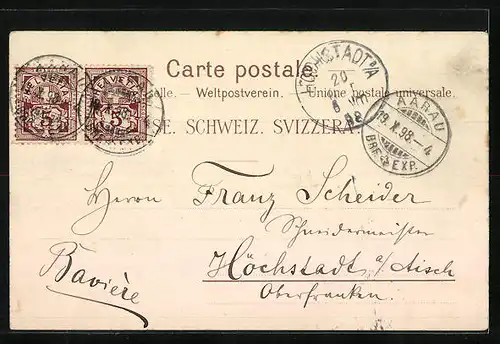 Carte postale.
Weltpostverein. — Unione postale universale.
SE. SCHWEIZ. SVIZZERA.
HELVETIA
HELVETIA
HÖCHSTADT A/A
20
AARAU
19.X.98.-4
BRF. EXP.
Herrn Franz Scheider
Schneidermeister
Höchstadt a/Aisch
Oberfranken.
Bavière